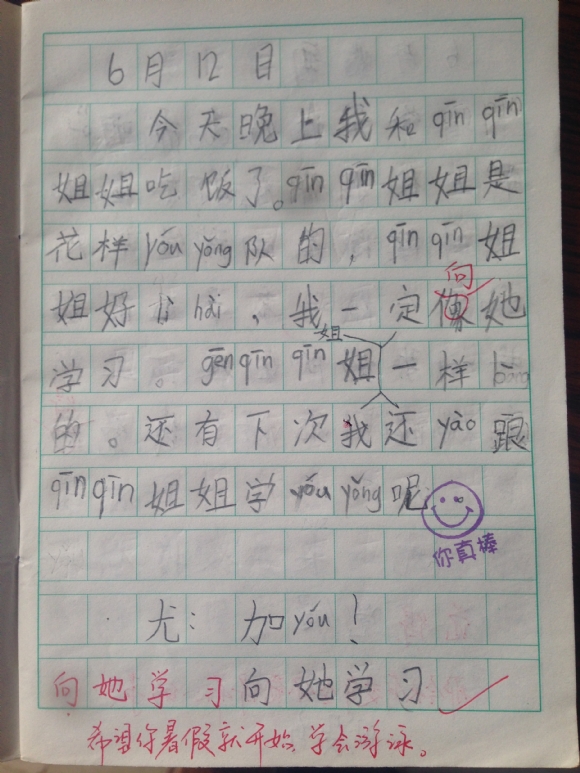 6月12日
今天晚上我和qīn qīn
姐姐吃饭了。qīn qīn姐姐是
花样yóu yǒng队的，qīn qīn姐
姐好lì hài，我一定像她
向
学习。gēn qīn qīn姐一样bàng
姐
的。还有下次我还yào跟
qīn qīn姐姐学yóu yǒng呢
你真棒
尤：加yóu！
向她学习向她学习
希望你暑假就开始学会游泳。